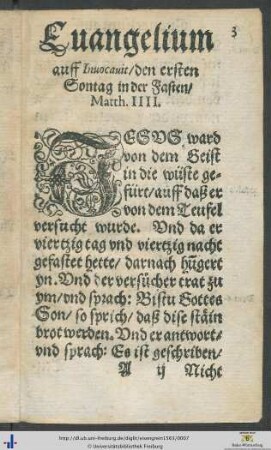 Euangelium
3
auff Inuocauit/den ersten
Sontag in der Fasten/
Matth. IIII.
IESVS ward
von dem Geist
in die wüste ge-
fürt/auff daß er
von dem Teufel
versucht wurde. Vnd da er
viertzig tag vnd viertzig nacht
gefastet hette/ darnach hūgert
yn. Vnd der versůcher trat zů
ym/ vnd sprach: Bistu Gottes
Son/ so sprich/ daß dise stäin
brot werden. Vnd er antwort/
vnd sprach: Es ist geschriben/
A ij Nicht
http://dl.ub.uni-freiburg.de/diglit/eisengrein1583/0007
© Universitätsbibliothek Freiburg